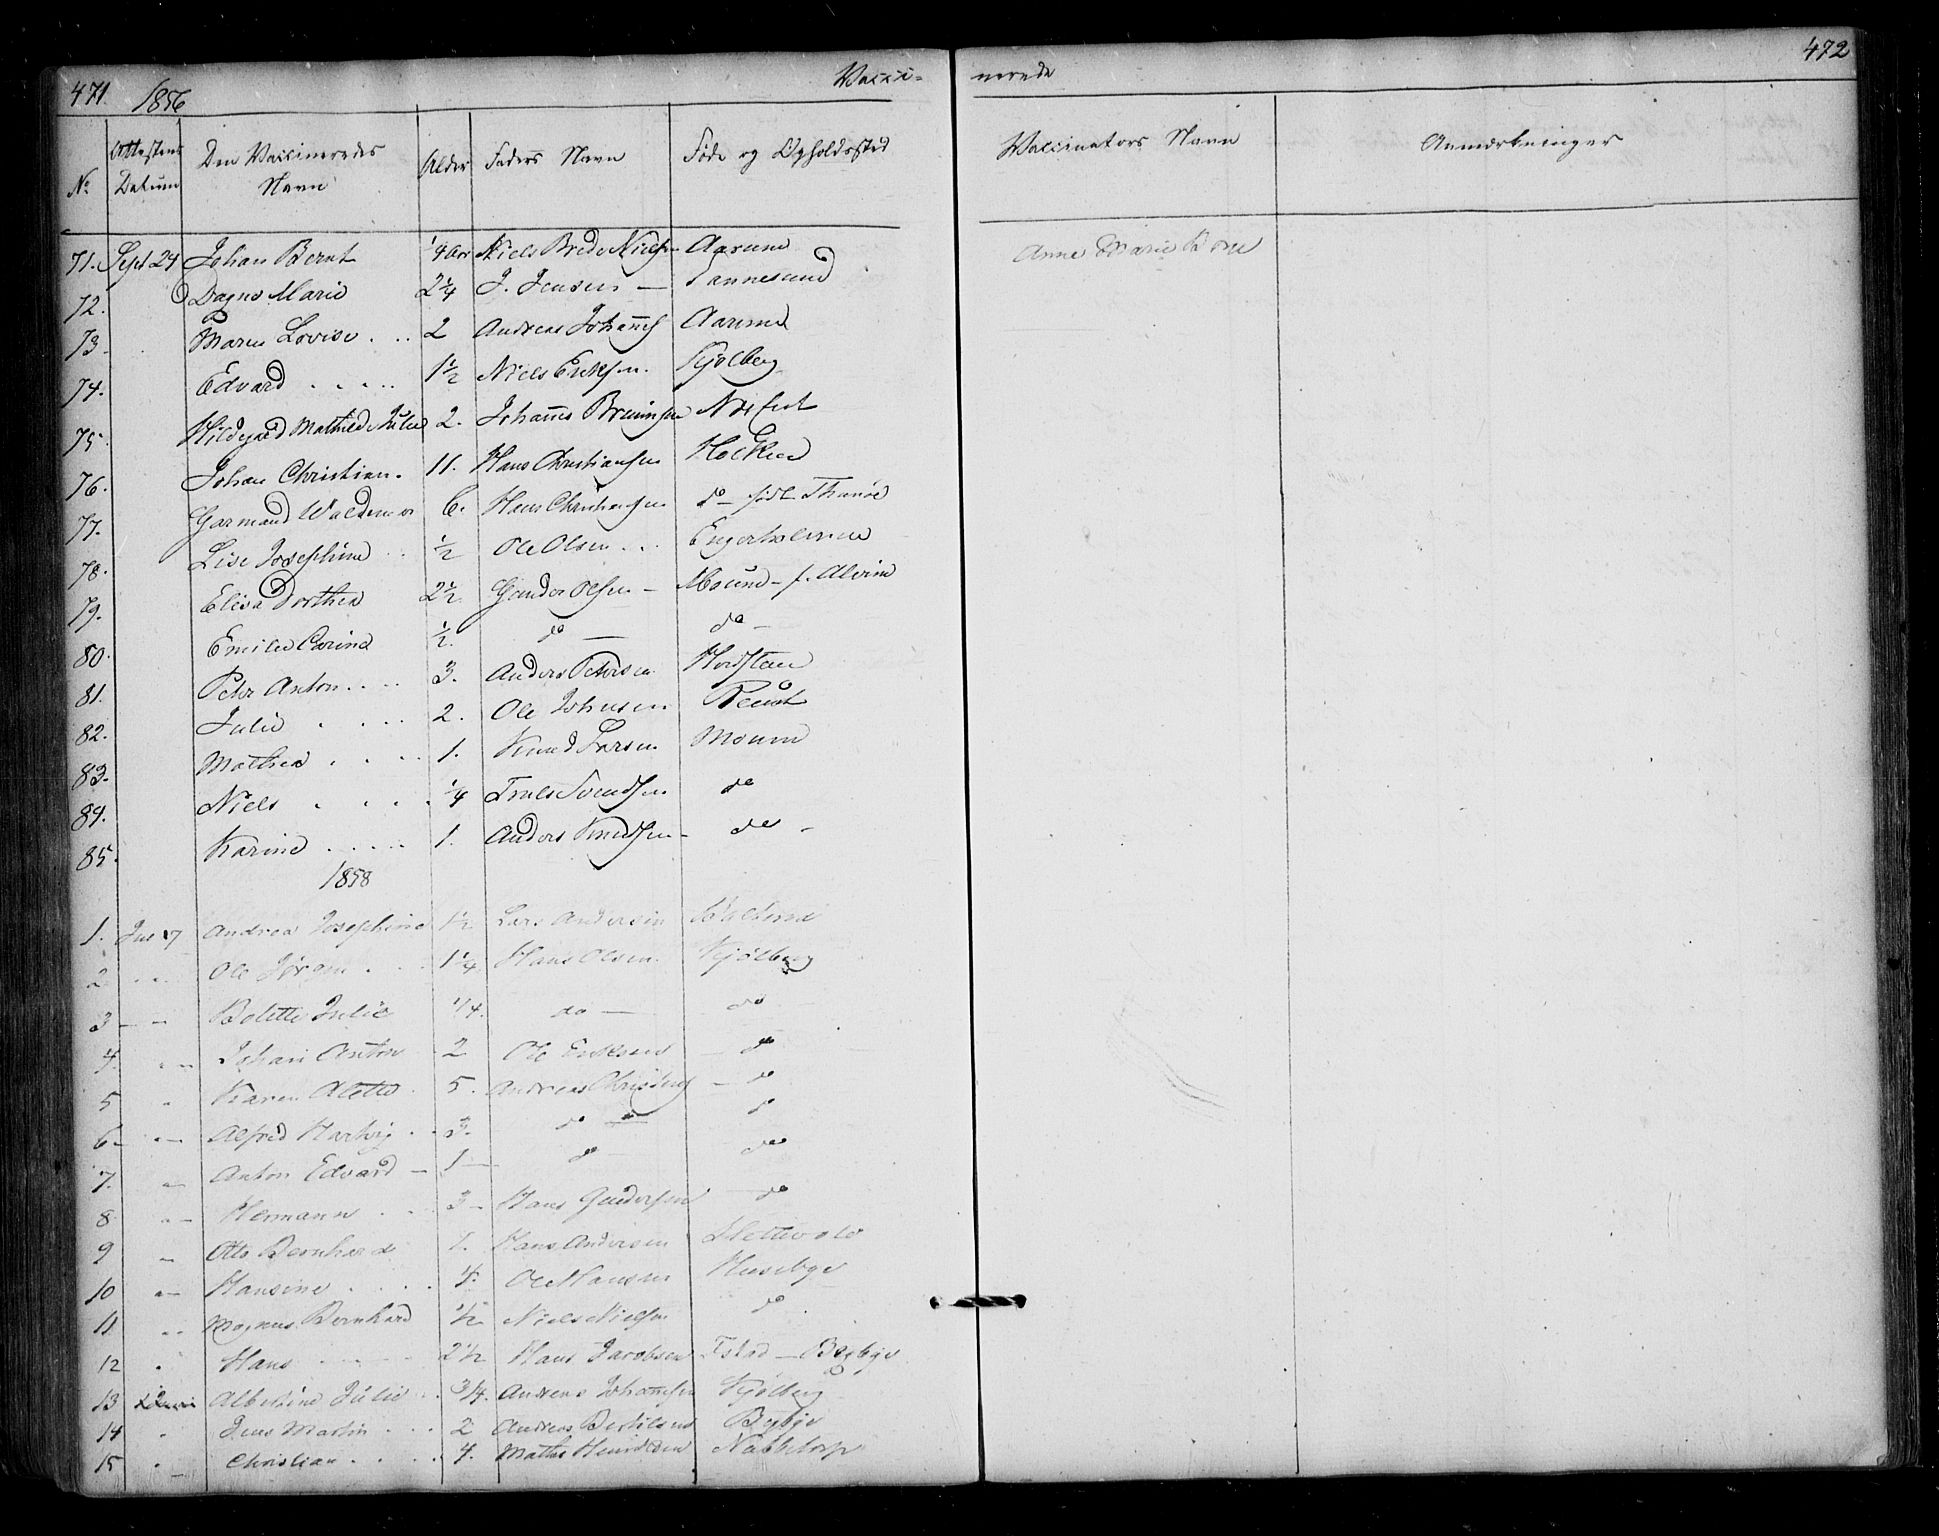 471 1856 Vacci-
nerede 472
No Attestens Datum Den Vaccineredes Navn Alder Faders Navn Føde og Opholdssted
Vaccinators Navn Anmærkninger
71. Sept 24 Johan Bernt 1/4 Aar Niels Brede Nielsen Aarum
Anne Marie
72. Dagne Marie 2 1/4 J. Jensen — Tannesund
73 Maren Lovise . .. 2 Andreas Johannes Aarum
74. Edvard . . . .. 1 1/2 Niels Eriksen. Kjølberg
75. Hildegard Mathilde Julie 2. Johannes
76. Johan Christian. 11. Hans Christiansen
77. Garmand Waldemar 6. Hans Christiansen do — født
78. Lise Josephine .. 1/2 Ole Olsen ... Engerholmen
79. Elisa Dorthea 2 1/2 Gunder Olsen — Moum - f. Alvim
80. Emilie Carine 1/2. do — do —
81. Peter Anton .... 3. Anders Petersen
82. Julie . . . . 2. Ole Johnsen
83. Mathea . . . . 1. Knud Larsen Moum
84. Niels . . . . 1/4 Truls Svendsen do
85. Karine ..... 1. Anders Knudsen - do -
1858
1. Jul 7 Andrea Josephine 1 1/2 Lars Andersen
2 . .. Ole Jørgen . . . 1 1/4 Hans Olsen. Kjølberg
3 — " Bolette Julie 1/4. do — do
4. " Johan Anton 2 Ole Eriksen — do
5 " Karen Alette . 5. Andreas — do
6 — " — Alfred Hartvig . . 3. do — do
7. " Anton Edvard — 1 — do — do
8 " — Hermann . . . 3 — Hans Gundersen — do
9 " Otto Bernhard 1. Hans Andersen Slettevold
10 " — Hansine . . . . 4. Ole Hansen Huseby
11 " Magnus Bernhard 1/2 Niels Nielsen do .
12 " Hans 2 1/2 Hans Jacobsen Fstad —
13 Albertine Julie . 3/4. Andreas Johannsen Kjølberg
14 " Jens Martin . . . 2 Andreas Bertelsen
15 " Christian . . . . 4. Mathis Nabbetorp